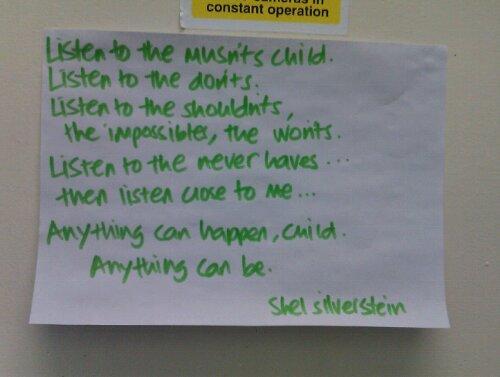 cameras in
constant operation
Listen to the musn'ts child.
Listen to the don'ts.
Listen to the shouldn'ts,
the impossibles, the won'ts.
Listen to the never haves...
then listen close to me...
Anything can happen, child.
Anything can be.
Shel silverstein